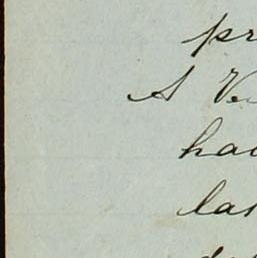 pr
A Ve
hav
las